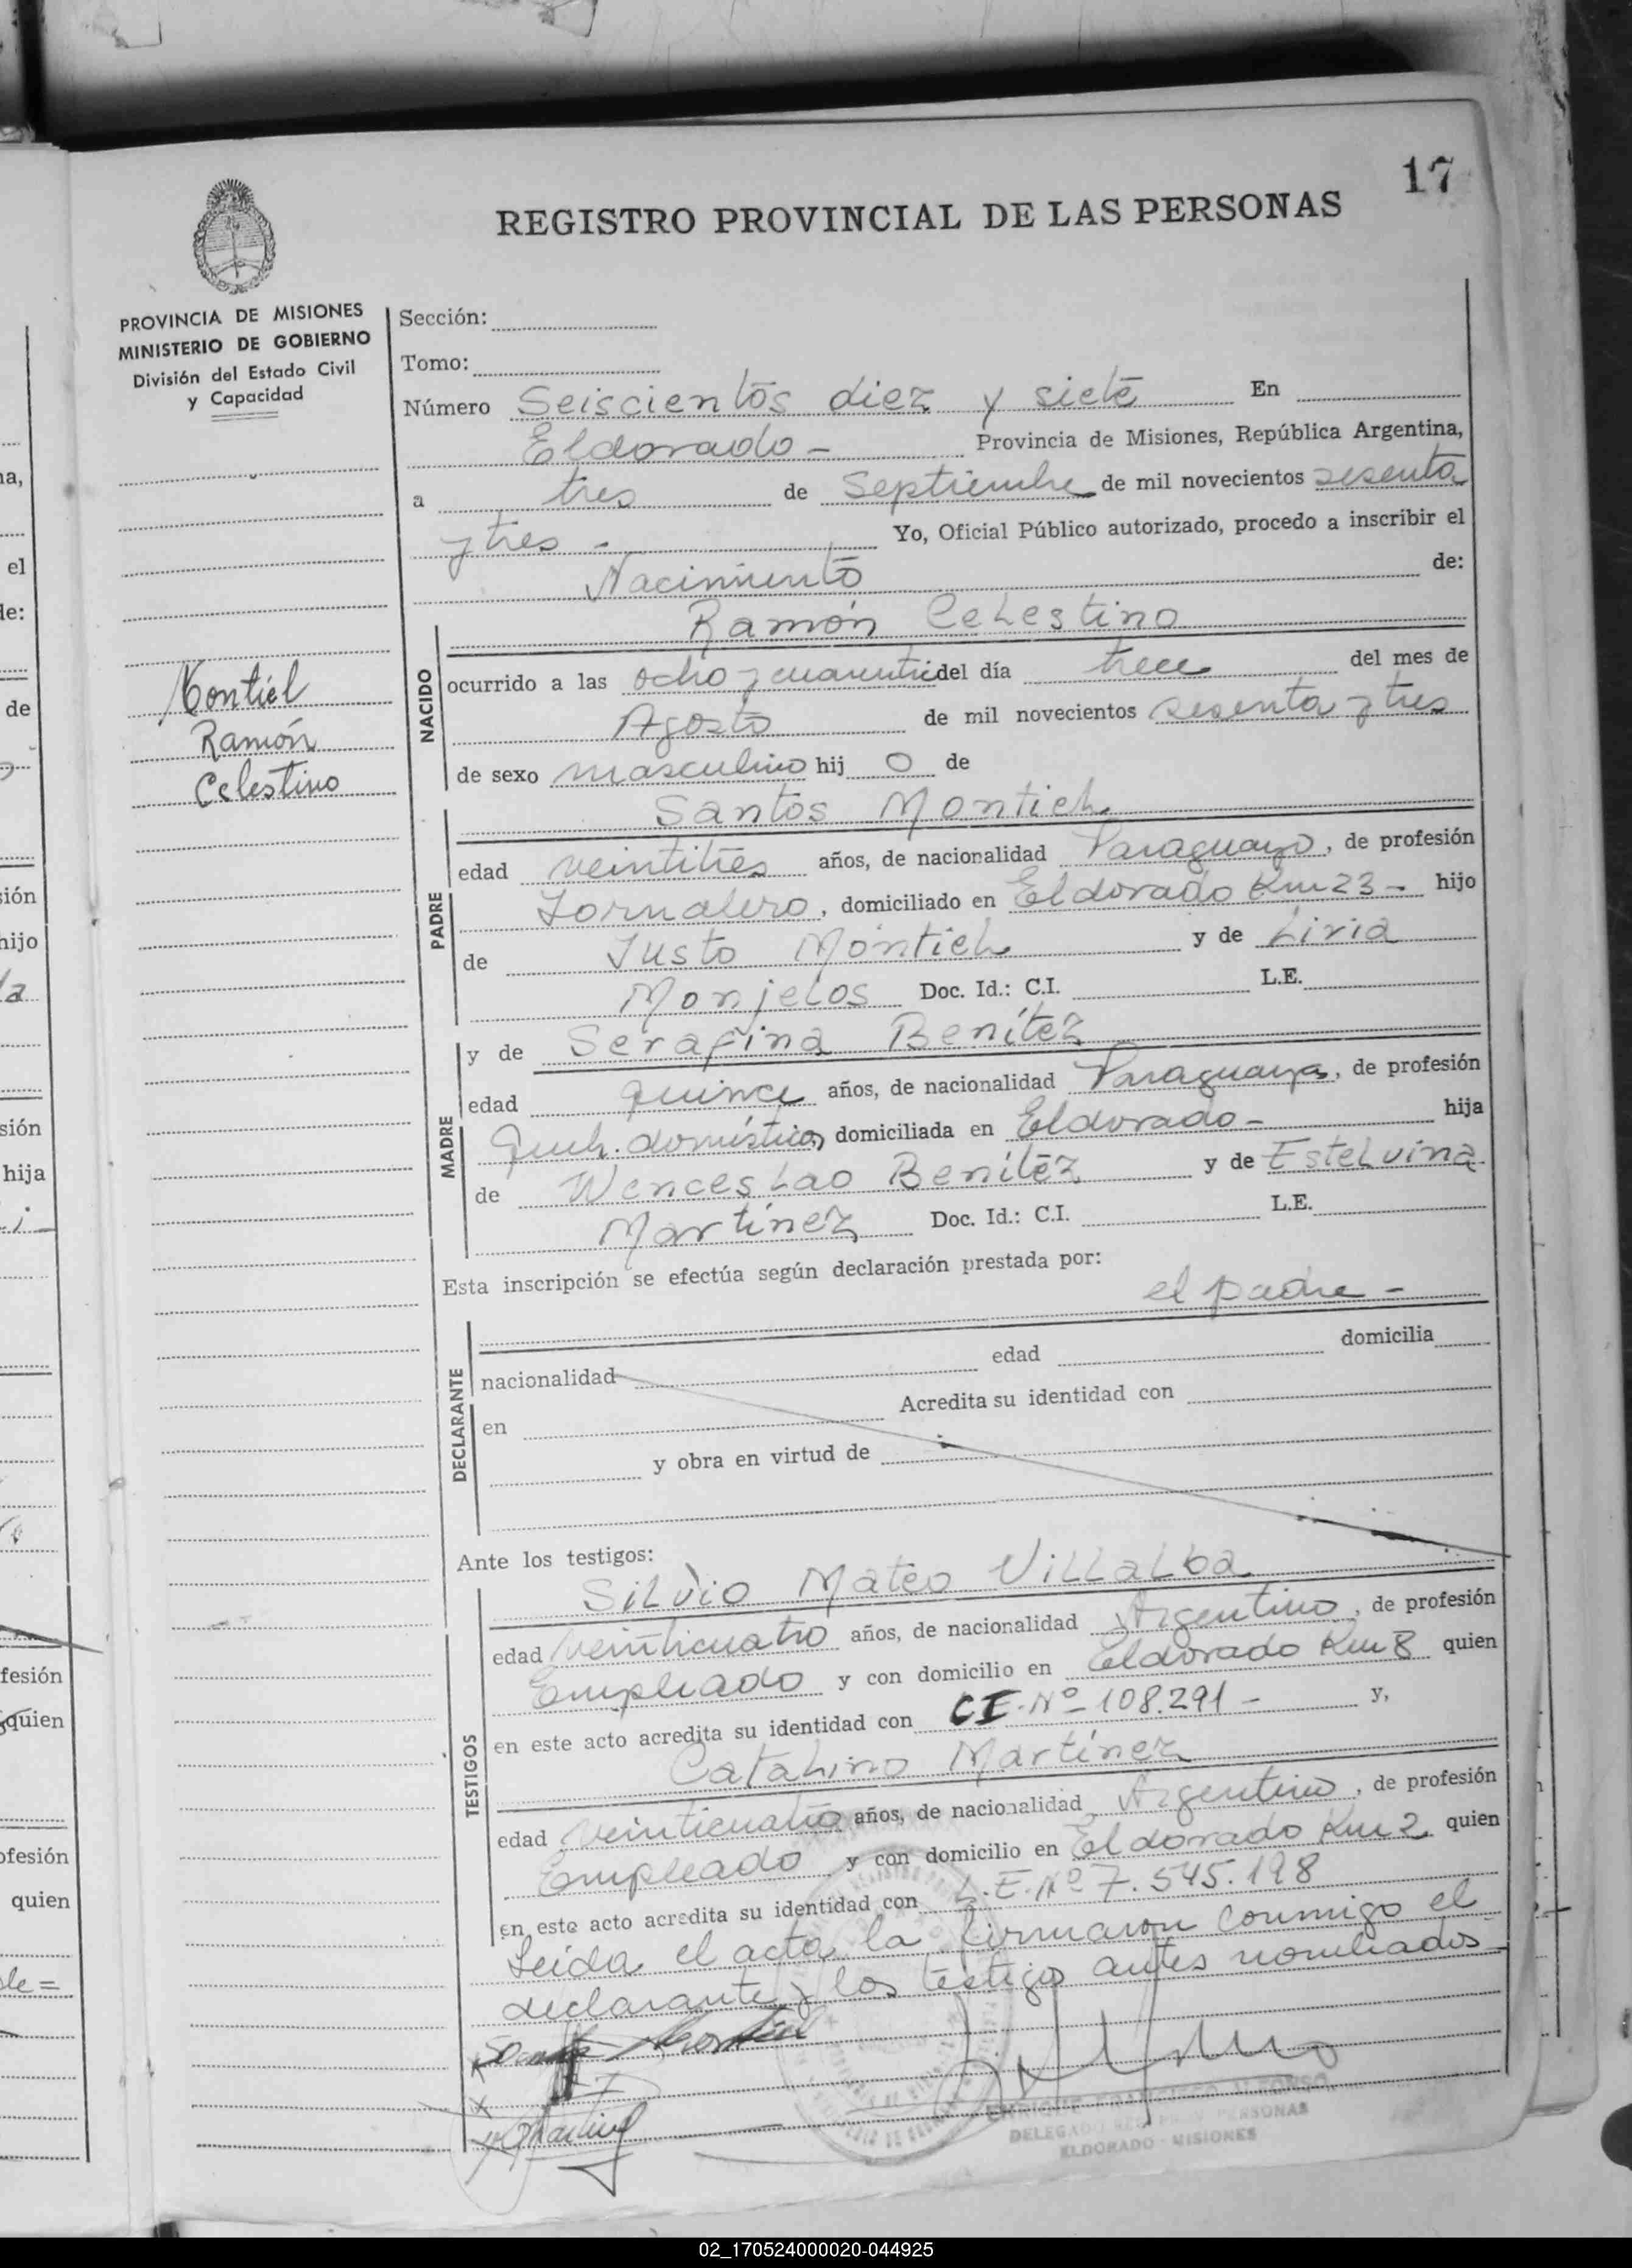 17
REGISTRO PROVINCIAL DE LAS PERSONAS
PROVINCIA DE MISIONES
MINISTERIO DE GOBIERNO
División del Estado Civil
y Capacidad
Montiel
Ramón
Celestino
Sección:
Tomo:
Número Seiscientos diez y siete En
Eldorado - Provincia de Misiones, República Argentina,
a tres de Septiembre de mil novecientos sesenta
y tres - Yo, Oficial Público autorizado, procedo a inscribir el
Nacimiento de:
Ramón Celestino
NACIDO
ocurrido a las ocho y cuarenta del día trece del mes de
Agosto de mil novecientos sesenta y tres
de sexo masculino hij o de
Santos Montiel
PADRE
edad veintitres años, de nacionalidad Paraguayo, de profesión
Jornalero, domiciliado en Eldorado Km 23 - hijo
de Justo Montiel y de Liria
Monjelos Doc. Id.: C.I. L.E.
y de Serafina Benítez
MADRE
edad quince años, de nacionalidad Paraguaya, de profesión
Queh. domésticos domiciliada en Eldorado - hija
de Wenceslao Benítez y de Estelvina
Martínez Doc. Id.: C.I. L.E.
Esta inscripción se efectúa según declaración prestada por:
el padre -
DECLARANTE
nacionalidad edad domicilia
en Acredita su identidad con
y obra en virtud de
Ante los testigos:
Silvio Mateo Villalba
TESTIGOS
edad veinticuatro años, de nacionalidad Argentino, de profesión
Empleado y con domicilio en Eldorado Km 8 quien
en este acto acredita su identidad con CI. Nº 108.291 - y,
Catalino Martínez
edad veinticuatro años, de nacionalidad Argentino, de profesión
Empleado y con domicilio en Eldorado Km 2 quien
en este acto acredita su identidad con L.E. Nº 7.545.198
Leida el acta la firmaron conmigo el
declarante y los testigos antes nombrados -
ENRIQUE FRANCISCO ALFONSO
DELEGADO REG. PROV. PERSONAS
ELDORADO - MISIONES
02_170524000020-044925